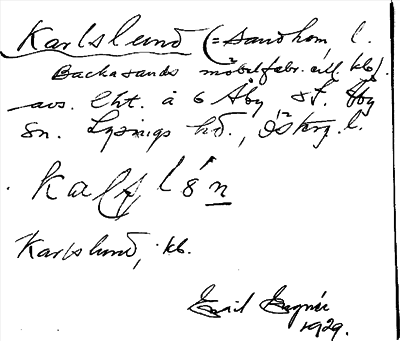 Karlslund (= Sandhem, l.
Backasands möbelfabr. ell. kb).
avs. lht. å 6 Åby St. Åby
Sn. Lysings hd., Österg. l.
Karlslund, kb.
Emil
1929.